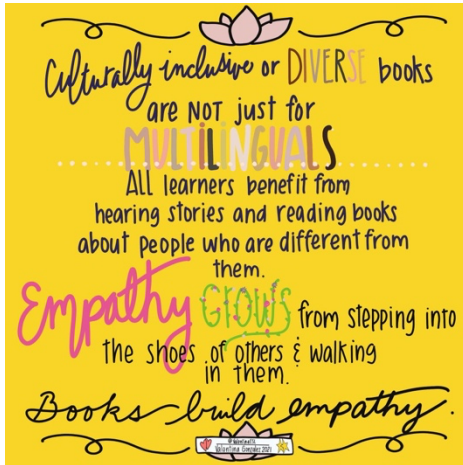 Culturally inclusive or DIVERSE books
are NOT just for
MULTILINGUALS
ALL learners benefit from
hearing stories and reading books
about people who are different from
them.
Empathy Grows from stepping into
the shoes of others & walking
in them.
Books build empathy.
Valentina Gonzalez 2021